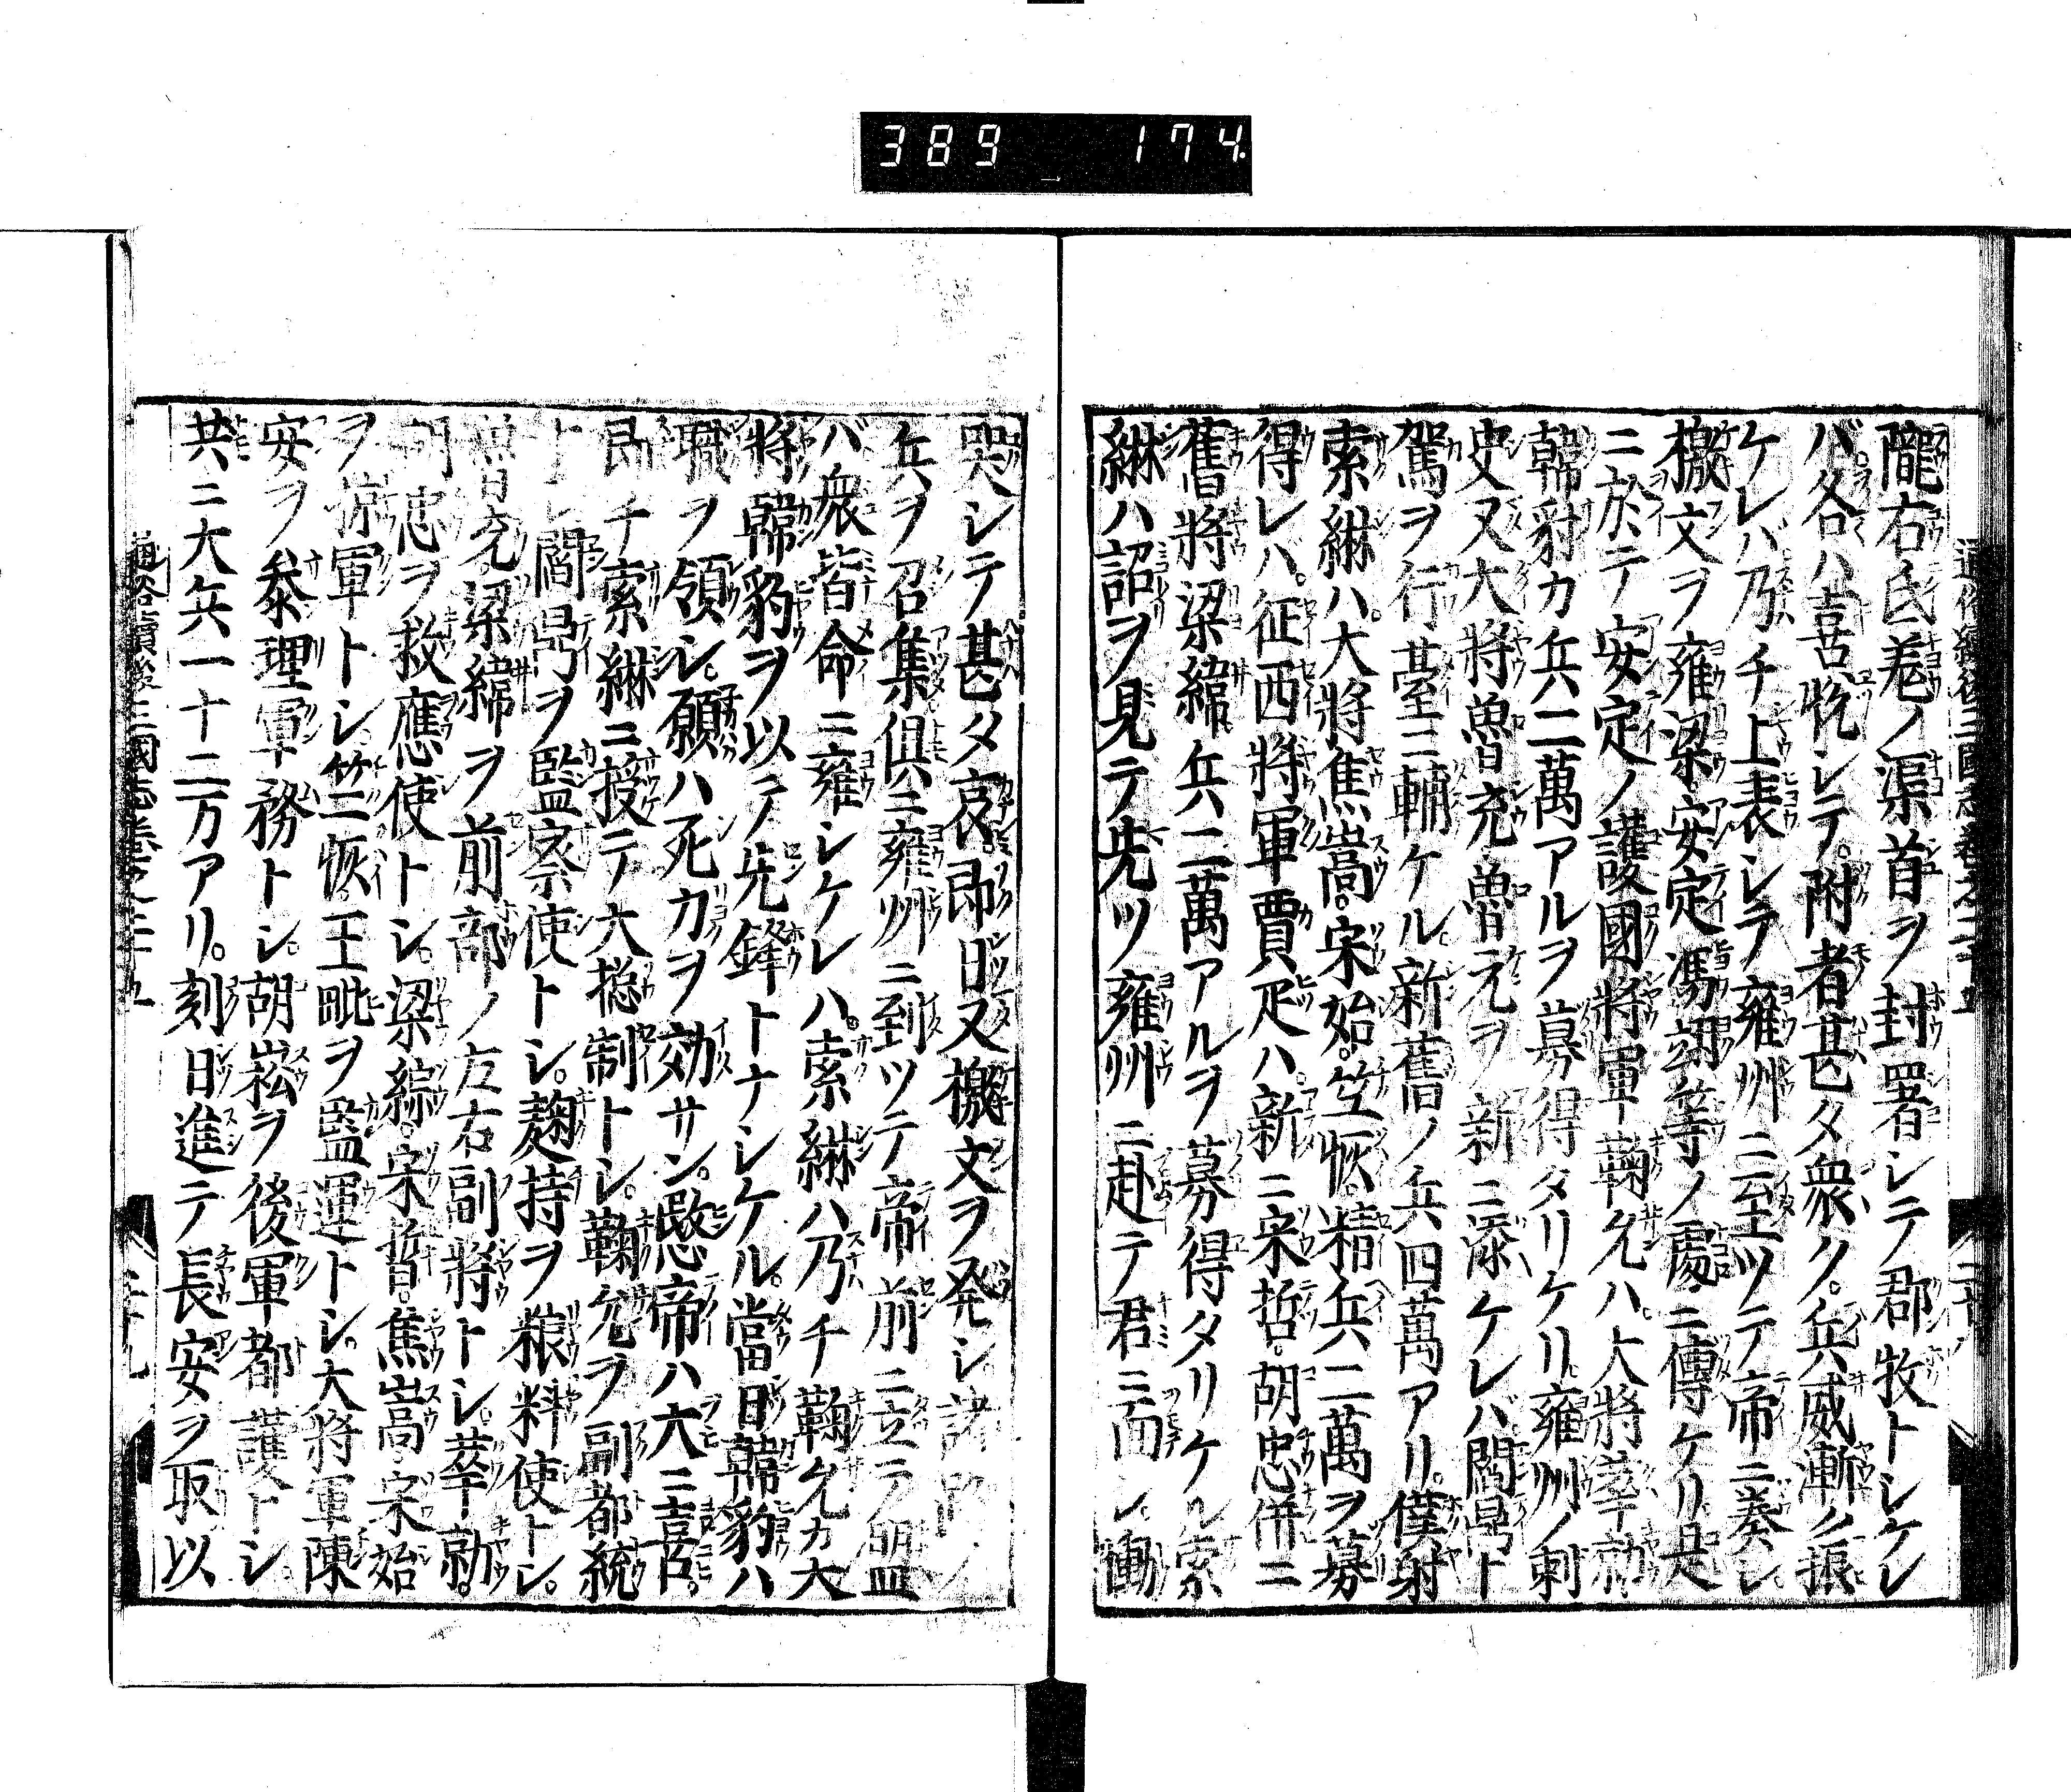 389 174
隴右氐羗ノ渠首ヲ封署シテ郡牧トシケレ
バ各ハ喜悦シテ附者甚タ衆ク。兵威漸ク振ヒ
ケレバ乃チ上表シテ雍州ニ至ツテ帝ニ奏シ
檄文ヲ雍梁安定馮翊等ノ處ニ傳ケリ是
ニ於テ安定ノ護國將軍鞠允ハ大將莘勍
韓豺カ兵二萬アルヲ募得タリケリ雍州ノ刺
史又大將魯充魯元ヲ新ニ添ケレバ閻鼎ト
駕ヲ行臺ニ輔ケル新舊ノ兵四萬アリ。僕射
索綝ハ大將焦嵩。宋始。竺恢。精兵二萬ヲ募
得レハ。征西將軍賈疋ハ。新ニ宋哲。胡忠併ニ
舊將梁緯。兵二萬アルヲ募得タリケル索
綝ハ詔ヲ見テ先ツ雍州ニ赴テ君ニ面シ慟
哭シテ甚タ哀。即日又檄文ヲ発シ諸路ノ
兵ヲ召集俱ニ雍州ニ到ツテ帝前ニ立テ盟
バ衆皆命ニ雍シケレハ。索綝ハ乃チ鞠允カ大
將韓豹ヲ以テ先鋒トナシケル。當日韓豹ハ
職ヲ領シ。願ハ死力ヲ効サン。愍帝ハ大ニ喜。
即チ索綝ニ授テ大捴制トシ。鞠允ヲ副都統
トシ閻鼎ヲ監察使トシ。麹持ヲ粮料使トシ。
魯充。梁緯ヲ前部ノ左右副將トシ。莘勍。
胡忠ヲ救應使トシ。梁綜。宋哲。焦嵩。宋始
ヲ掠軍トシ。竺恢王毗ヲ監運トシ。大將軍陳
安ヲ叅理軍務トシ。胡崧ヲ後軍都護トシ。
共ニ大兵一十二万アリ。刻日進テ長安ヲ取以
通俗續後三國志卷之二十五